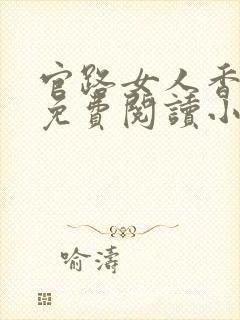 官路女人香
免費閱讀小
喻濤